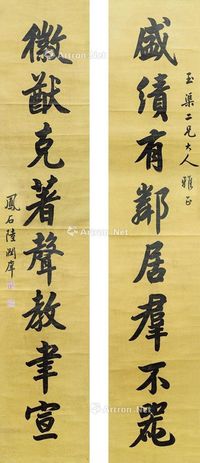 玉渠二兄大人雅正
盛績有鄰居羣不孤
徽猷克著聲教聿宣
鳳石陸潤庠
Art.Net
Artron.Net